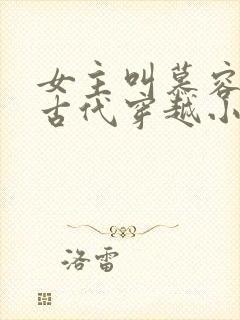 女主叫慕容
古代穿越小
洛雷